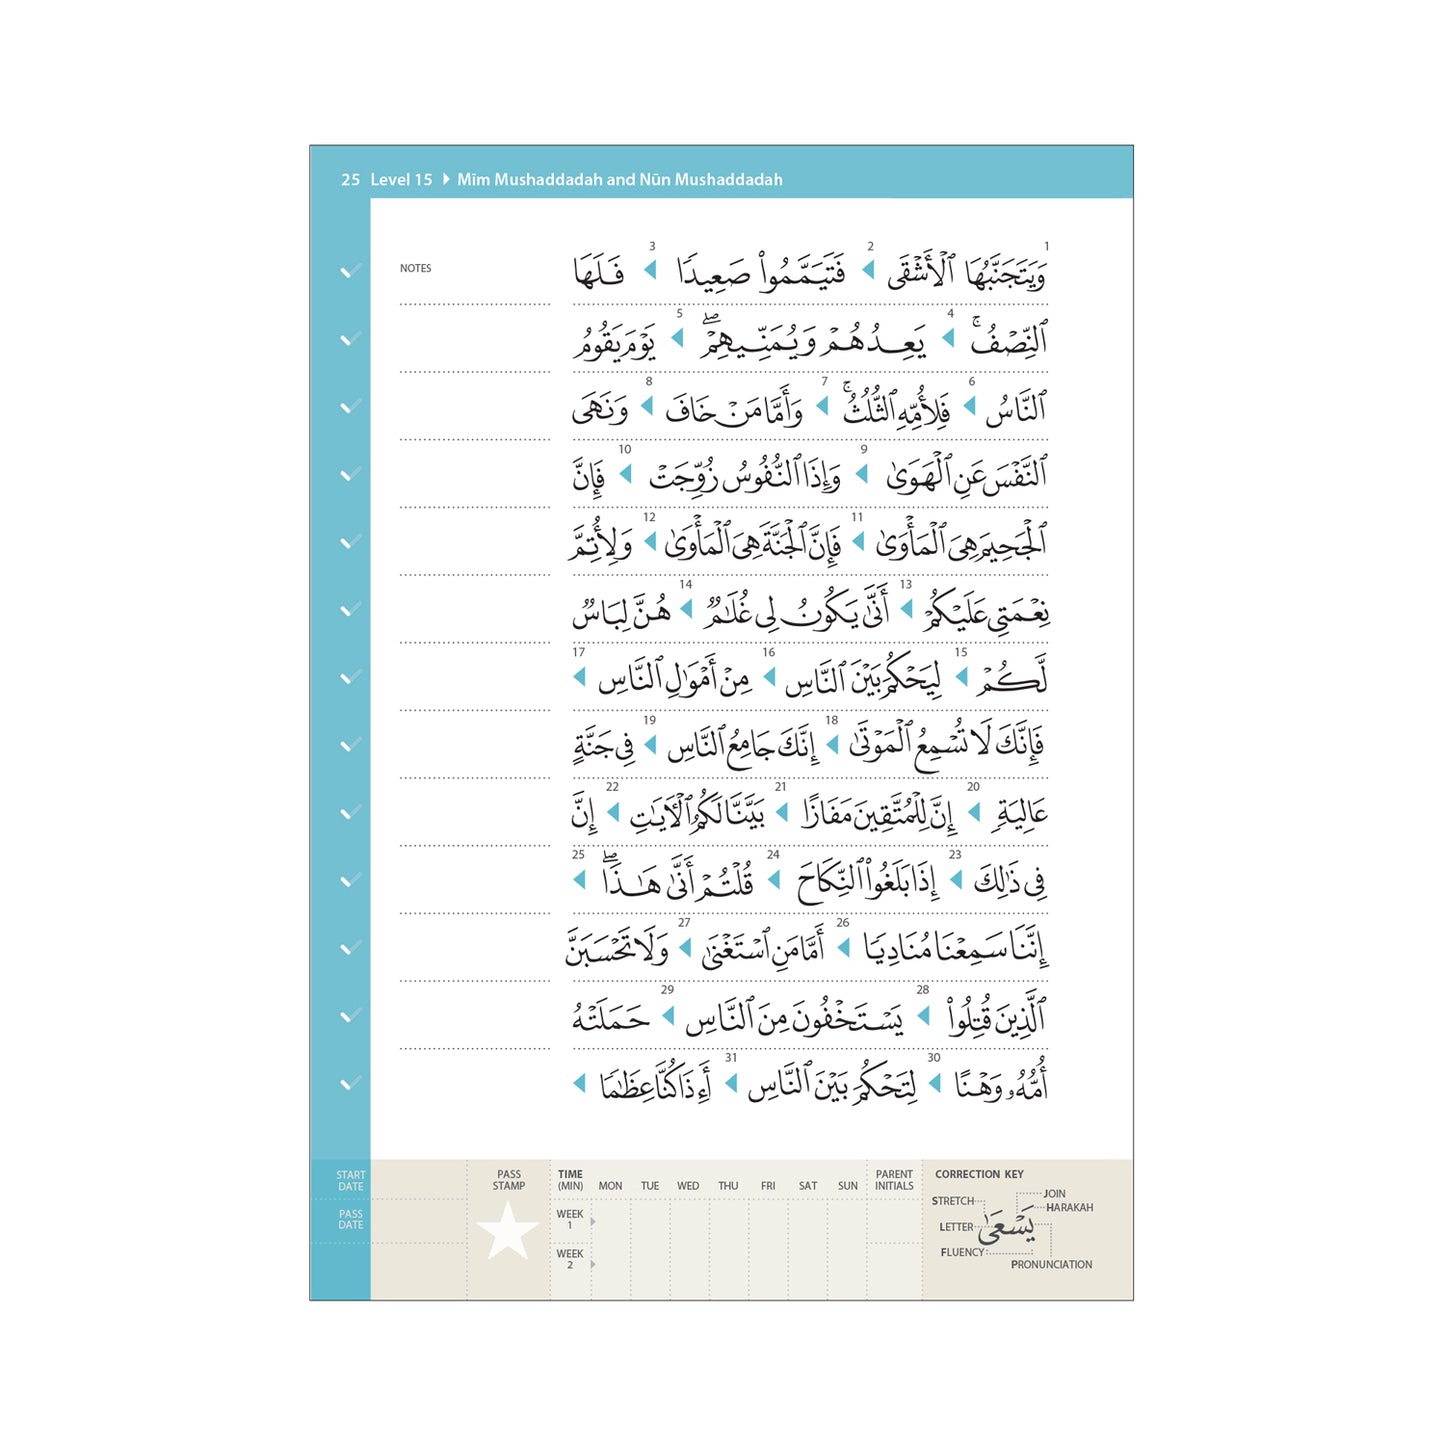 25 Level 15 Mīm Mushaddadah and Nūn Mushaddadah
NOTES
1 2 3
وَيَتَجَنَّبُهَا ٱلْأَشْقَى فَتَيَمَّمُوا۟ صَعِيدًا فَلَهَا
4 5
ٱلنِّصْفُ ۚ يَعِدُهُمْ وَيُمَنِّيهِمْ ۖ يَوْمَ يَقُومُ
6 7 8
ٱلنَّاسُ فَلِأُمِّهِ ٱلثُّلُثُ ۚ وَأَمَّا مَنْ خَافَ وَنَهَى
9 10
ٱلنَّفْسَ عَنِ ٱلْهَوَىٰ وَإِذَا ٱلنُّفُوسُ زُوِّجَتْ فَإِنَّ
11 12
ٱلْجَحِيمَ هِىَ ٱلْمَأْوَىٰ فَإِنَّ ٱلْجَنَّةَ هِىَ ٱلْمَأْوَىٰ وَلِأُتِمَّ
13 14
نِعْمَتِى عَلَيْكُمْ أَنَّىٰ يَكُونُ لِى غُلَـٰمٌ هُنَّ لِبَاسٌ
15 16 17
لَّكُمْ لِيَحْكُمَ بَيْنَ ٱلنَّاسِ مِنْ أَمْوَٰلِ ٱلنَّاسِ
18 19
فَإِنَّكَ لَا تُسْمِعُ ٱلْمَوْتَىٰ إِنَّكَ جَامِعُ ٱلنَّاسِ فِى جَنَّةٍ
20 21 22
عَالِيَةٍ إِنَّ لِلْمُتَّقِينَ مَفَازًا بَيَّنَّا لَكُمُ ٱلْـَٔايَـٰتِ إِنَّ
23 24 25
فِى ذَٰلِكَ إِذَا بَلَغُوا۟ ٱلنِّكَاحَ قُلْتُمْ أَنَّىٰ هَـٰذَا ۖ
26 27
إِنَّنَا سَمِعْنَا مُنَادِيًا أَمَّا مَنِ ٱسْتَغْنَىٰ وَلَا تَحْسَبَنَّ
28 29
ٱلَّذِينَ قُتِلُوا۟ يَسْتَخْفُونَ مِنَ ٱلنَّاسِ حَمَلَتْهُ
30 31
أُمُّهُۥ وَهْنًا لِتَحْكُمَ بَيْنَ ٱلنَّاسِ أَءِذَا كُنَّا عِظَـٰمًا
START DATE
PASS DATE
PASS STAMP
TIME (MIN) MON TUE WED THU FRI SAT SUN
WEEK 1
WEEK 2
PARENT INITIALS
CORRECTION KEY
STRETCH JOIN
HARAKAH
LETTER يَسْعَىٰ
FLUENCY
PRONUNCIATION